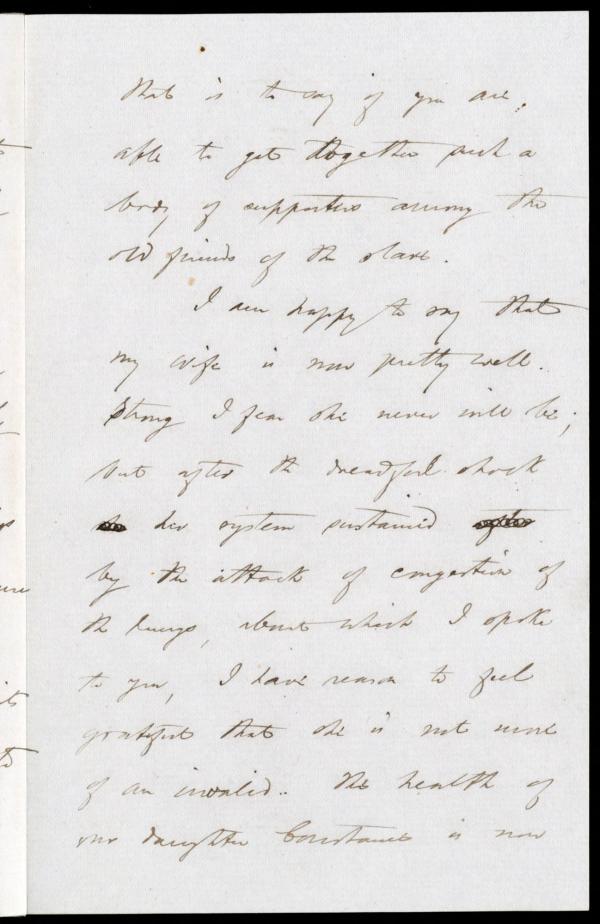 that is to say if you are,
able to get together such a
body of supporters among the
old friends of the slave.
I am happy to say that
my wife is now pretty well.
Strong I fear she never will be;
but after the dreadful shock
her system sustained
by the attack of congestion of
the lungs, about which I spoke
to you, I have reason to feel
grateful that she is not more
of an invalid. The health of
our daughter Constance is now